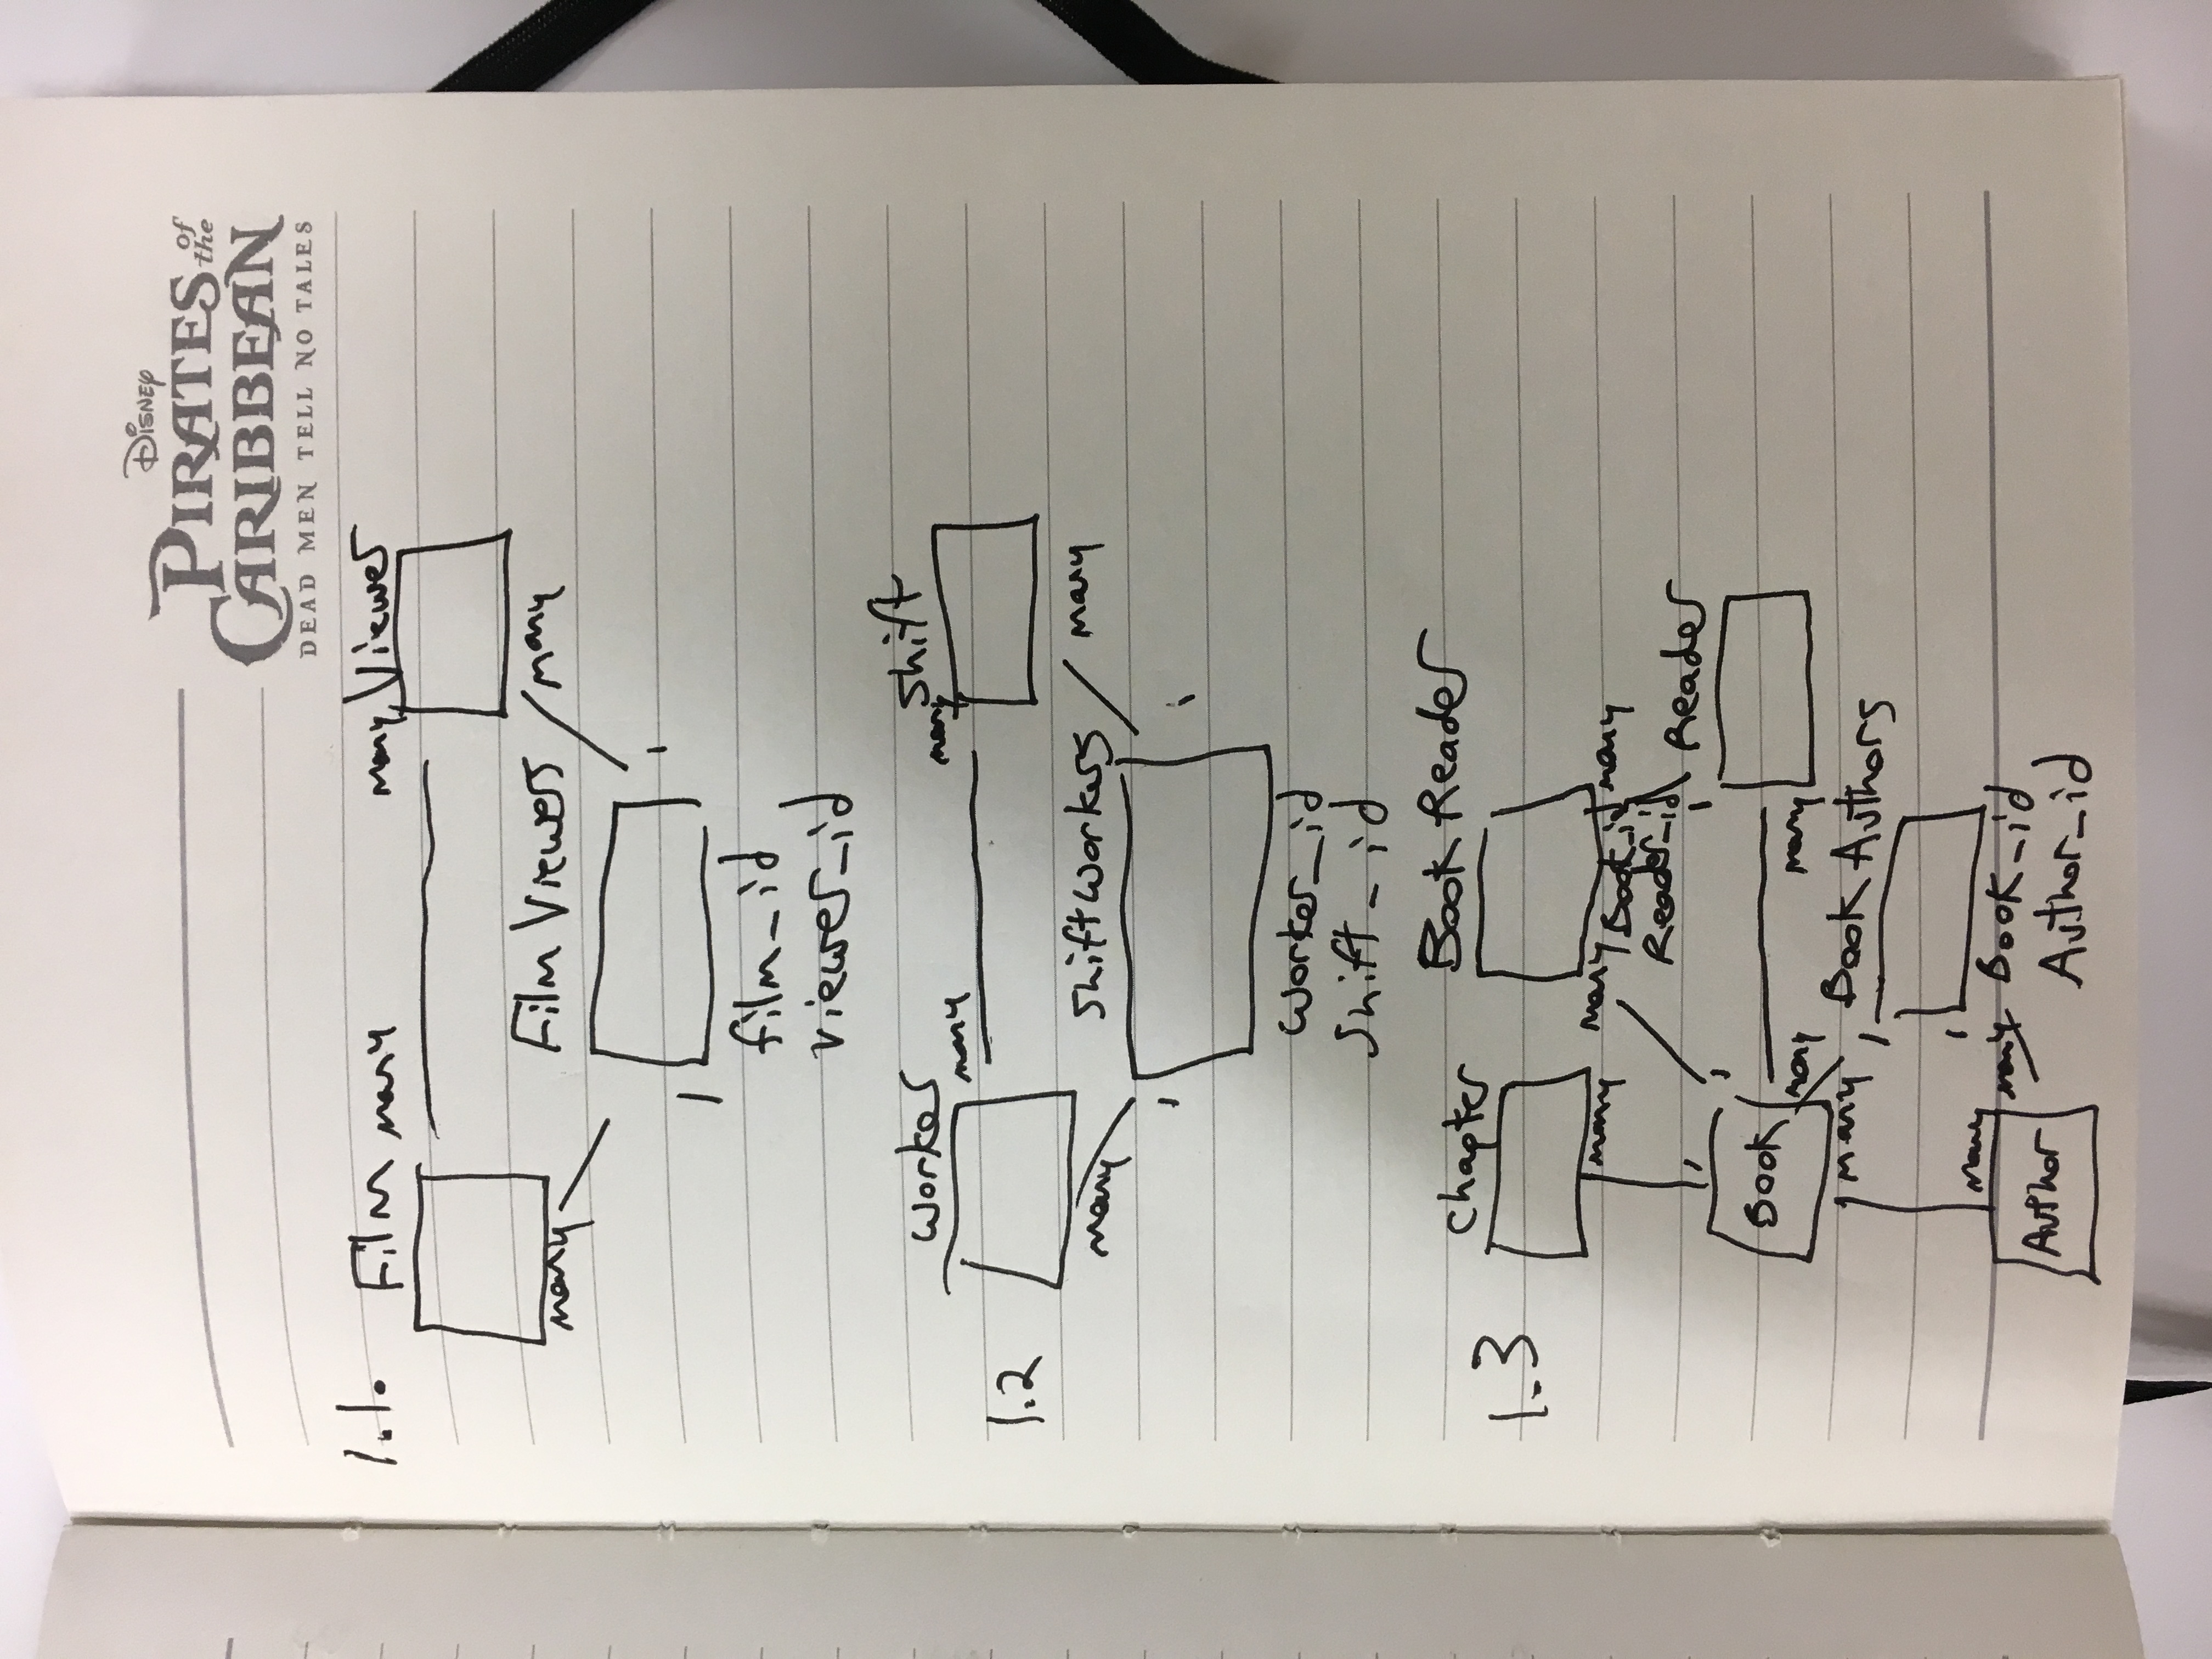 Disney
PIRATES of the
CARIBBEAN
DEAD MEN TELL NO TALES
1.1. Film many many Viewer
many Film Viewers many
1 1
film_id
viewer_id
Worker many many Shift
1.2
many ShiftWorkers many
1 1
Worker_id
Shift_id
1.3 Chapter Book Reader
many many Book_id many
Reader_id Reader
1 1 1
Book many many
many Book Authors
1
1
many many Book_id
Author Author_id